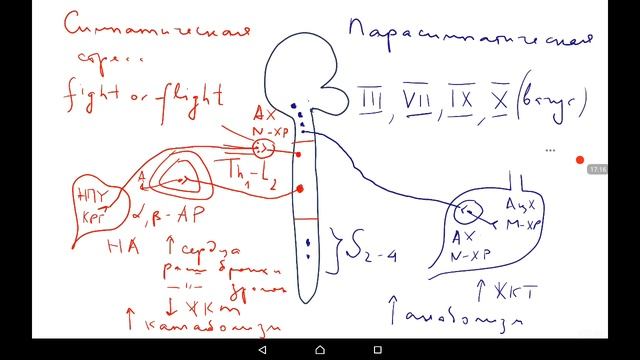 Симпатическая
стресс
fight or flight
АХ
N-ХР
Th1-L2
НПУ
КРГ
А
α, β-АР
НА
↑ сердца
расш бронхи
—"—
↓ ЖКТ
↑ катаболизм
Парасимпатическая
III, VII, IX, X (вагус)
17:16
АцХ
М-ХР
АХ
N-ХР
S2-4
↑ ЖКТ
↑ анаболизм